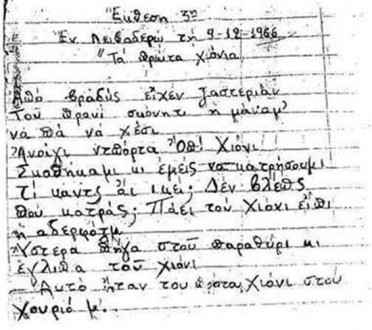 Έκθεση 3η
Εν Λειβαδερώ τη 9-12-1966
"Τα πρώτα χιόνια
Απο βραδύς είχεν ξαστεριάν
Του πρανί σκώνητι η μάναμ'
να πα να χέσι
Ανοίγι ντπόρτα Οπ! Χιόνι
Σκοθήκαμι κι εμείς να κατρήσουμι
Τί κάντς αι ικεί; Δέν βλέπς
που κατράς; Πάει τού χιόνι είπι
η αδερφότμ
Υστερα πήγα στου παραθύρι κι
έγλιπα τού χιόνι
Αυτό ήταν του πρώτα χιόνι στου
χουριό μ'.